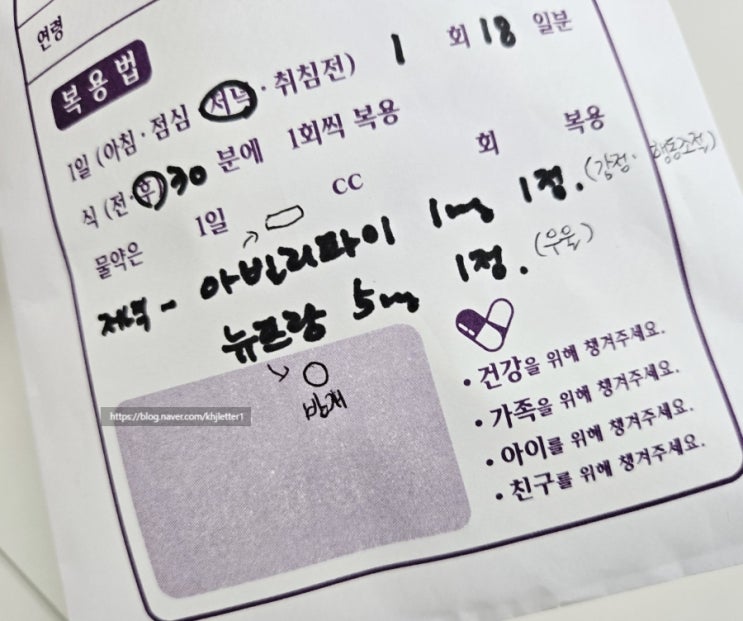 연령
복용법
1일 (아침·점심 저녁·취침전) 1 회 18 일분
식 (전·후) 30 분에 1회씩 복용
물약은 1일 CC 회 복용
저녁 - 아빌리파이 1mg 1정. (감정·행동조절)
뉴프람 5mg 1정. (우울)
반개
https://blog.naver.com/khjletter1
• 건강을 위해 챙겨주세요.
• 가족을 위해 챙겨주세요.
• 아이를 위해 챙겨주세요.
• 친구를 위해 챙겨주세요.